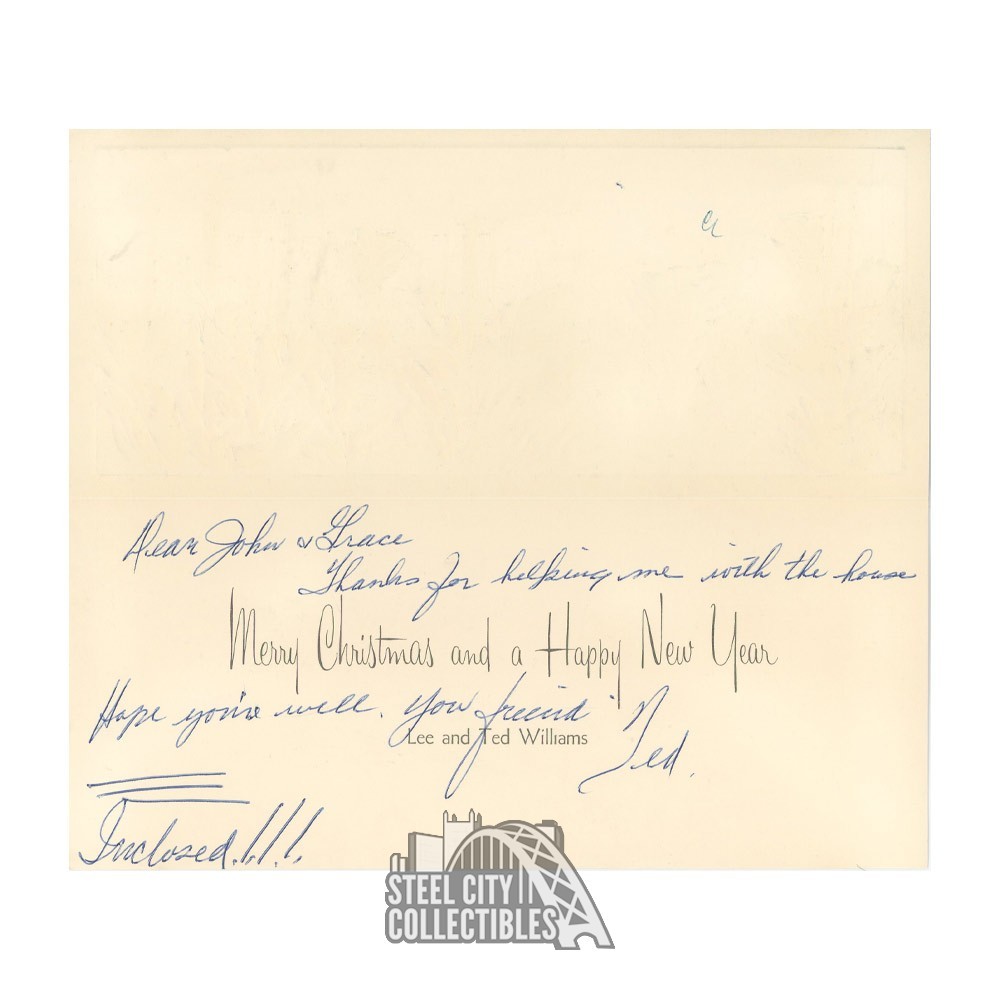 Dear John & Grace
Thanks for helping me with the house
Merry Christmas and a Happy New Year
Hope you're well. You friend
Lee and Ted Williams
Ted.
Inclosed.!.!.!.
STEEL CITY
COLLECTIBLES